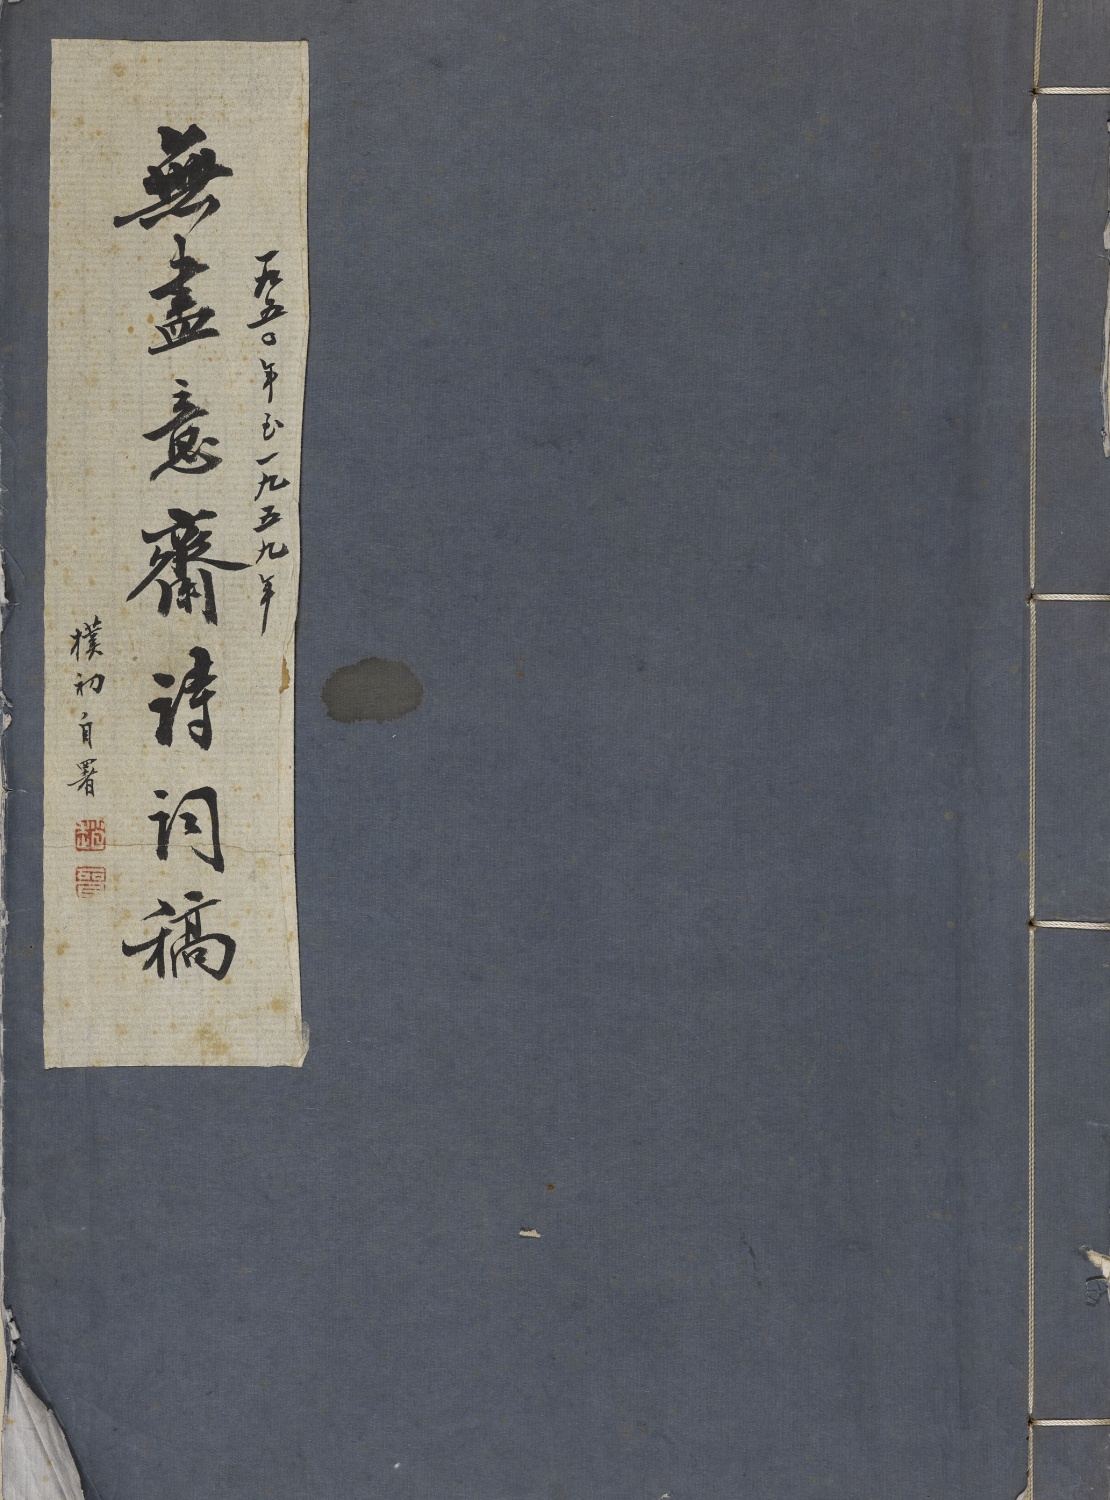 一九五〇年至一九五九年
無盡意齋詩詞稿
樸初自署